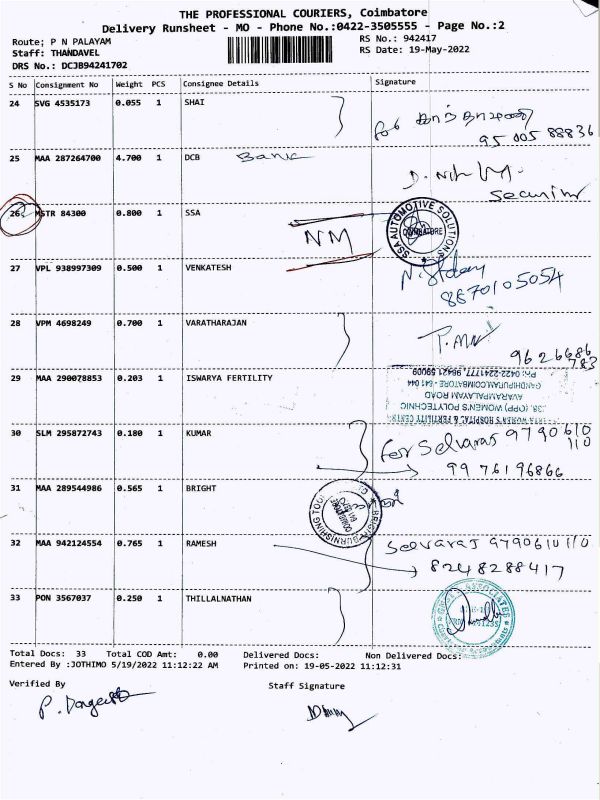 THE PROFESSIONAL COURIERS, Coimbatore
Delivery Runsheet - MO - Phone No.:0422-3505555 - Page No.:2
Route; P N PALAYAM
RS No.: 942417
Staff: THANDAVEL
RS Date: 19-May-2022
DRS No.: DCJB94241702
S No Consignment No Weight PCS Consignee Details Signature
24 SVG 4535173 0.055 1 SHAI
95005 88836
25 MAA 287264700 4.700 1 DCB Bank
26 MSTR 84300 0.800 1 SSA
NM
SSA AUTOMOTIVE SOLUTIONS
COIMBATORE
27 VPL 938997309 0.500 1 VENKATESH
8870105054
28 VPM 4698249 0.700 1 VARATHARAJAN
9626686
783
29 MAA 290078853 0.203 1 ISWARYA FERTILITY
WOMEN'S HOSPITAL & FERTILITY CENTRE
(OPP) WOMEN'S POLYTECHNIC
AVARAMPALAYAM ROAD
GANDHIPURAM,COIMBATORE - 641 044
PH: 0422-2241777, 98421 59009
30 SLM 295872743 0.180 1 KUMAR
for Selvaraj 9790610
110
9976196866
31 MAA 289544986 0.565 1 BRIGHT
BRIGHT BURNISHING TOOL
32 MAA 942124554 0.765 1 RAMESH
Selvaraj 9790610110
8248288417
33 PON 3567037 0.250 1 THILLALNATHAN
ASSOCIATES
Total Docs: 33 Total COD Amt: 0.00 Delivered Docs: Non Delivered Docs:
Entered By :JOTHIMO 5/19/2022 11:12:22 AM Printed on: 19-05-2022 11:12:31
Verified By
Staff Signature